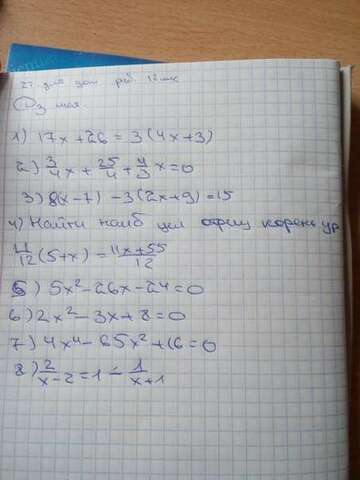 1) 17x + 26 = 3(4x+3)
2) 3/4x + 25/4 + 4/3x = 0
3) 8(x-7) - 3(2x+9) = 15
4) Найти наиб цел отриц корень ур
11/12(5+x) = 11x+55/12
5) 5x² - 26x - 24 = 0
6) 2x² - 3x + 8 = 0
7) 4x⁴ - 65x² + 16 = 0
8) 2/x-2 = 1 - 1/x+1